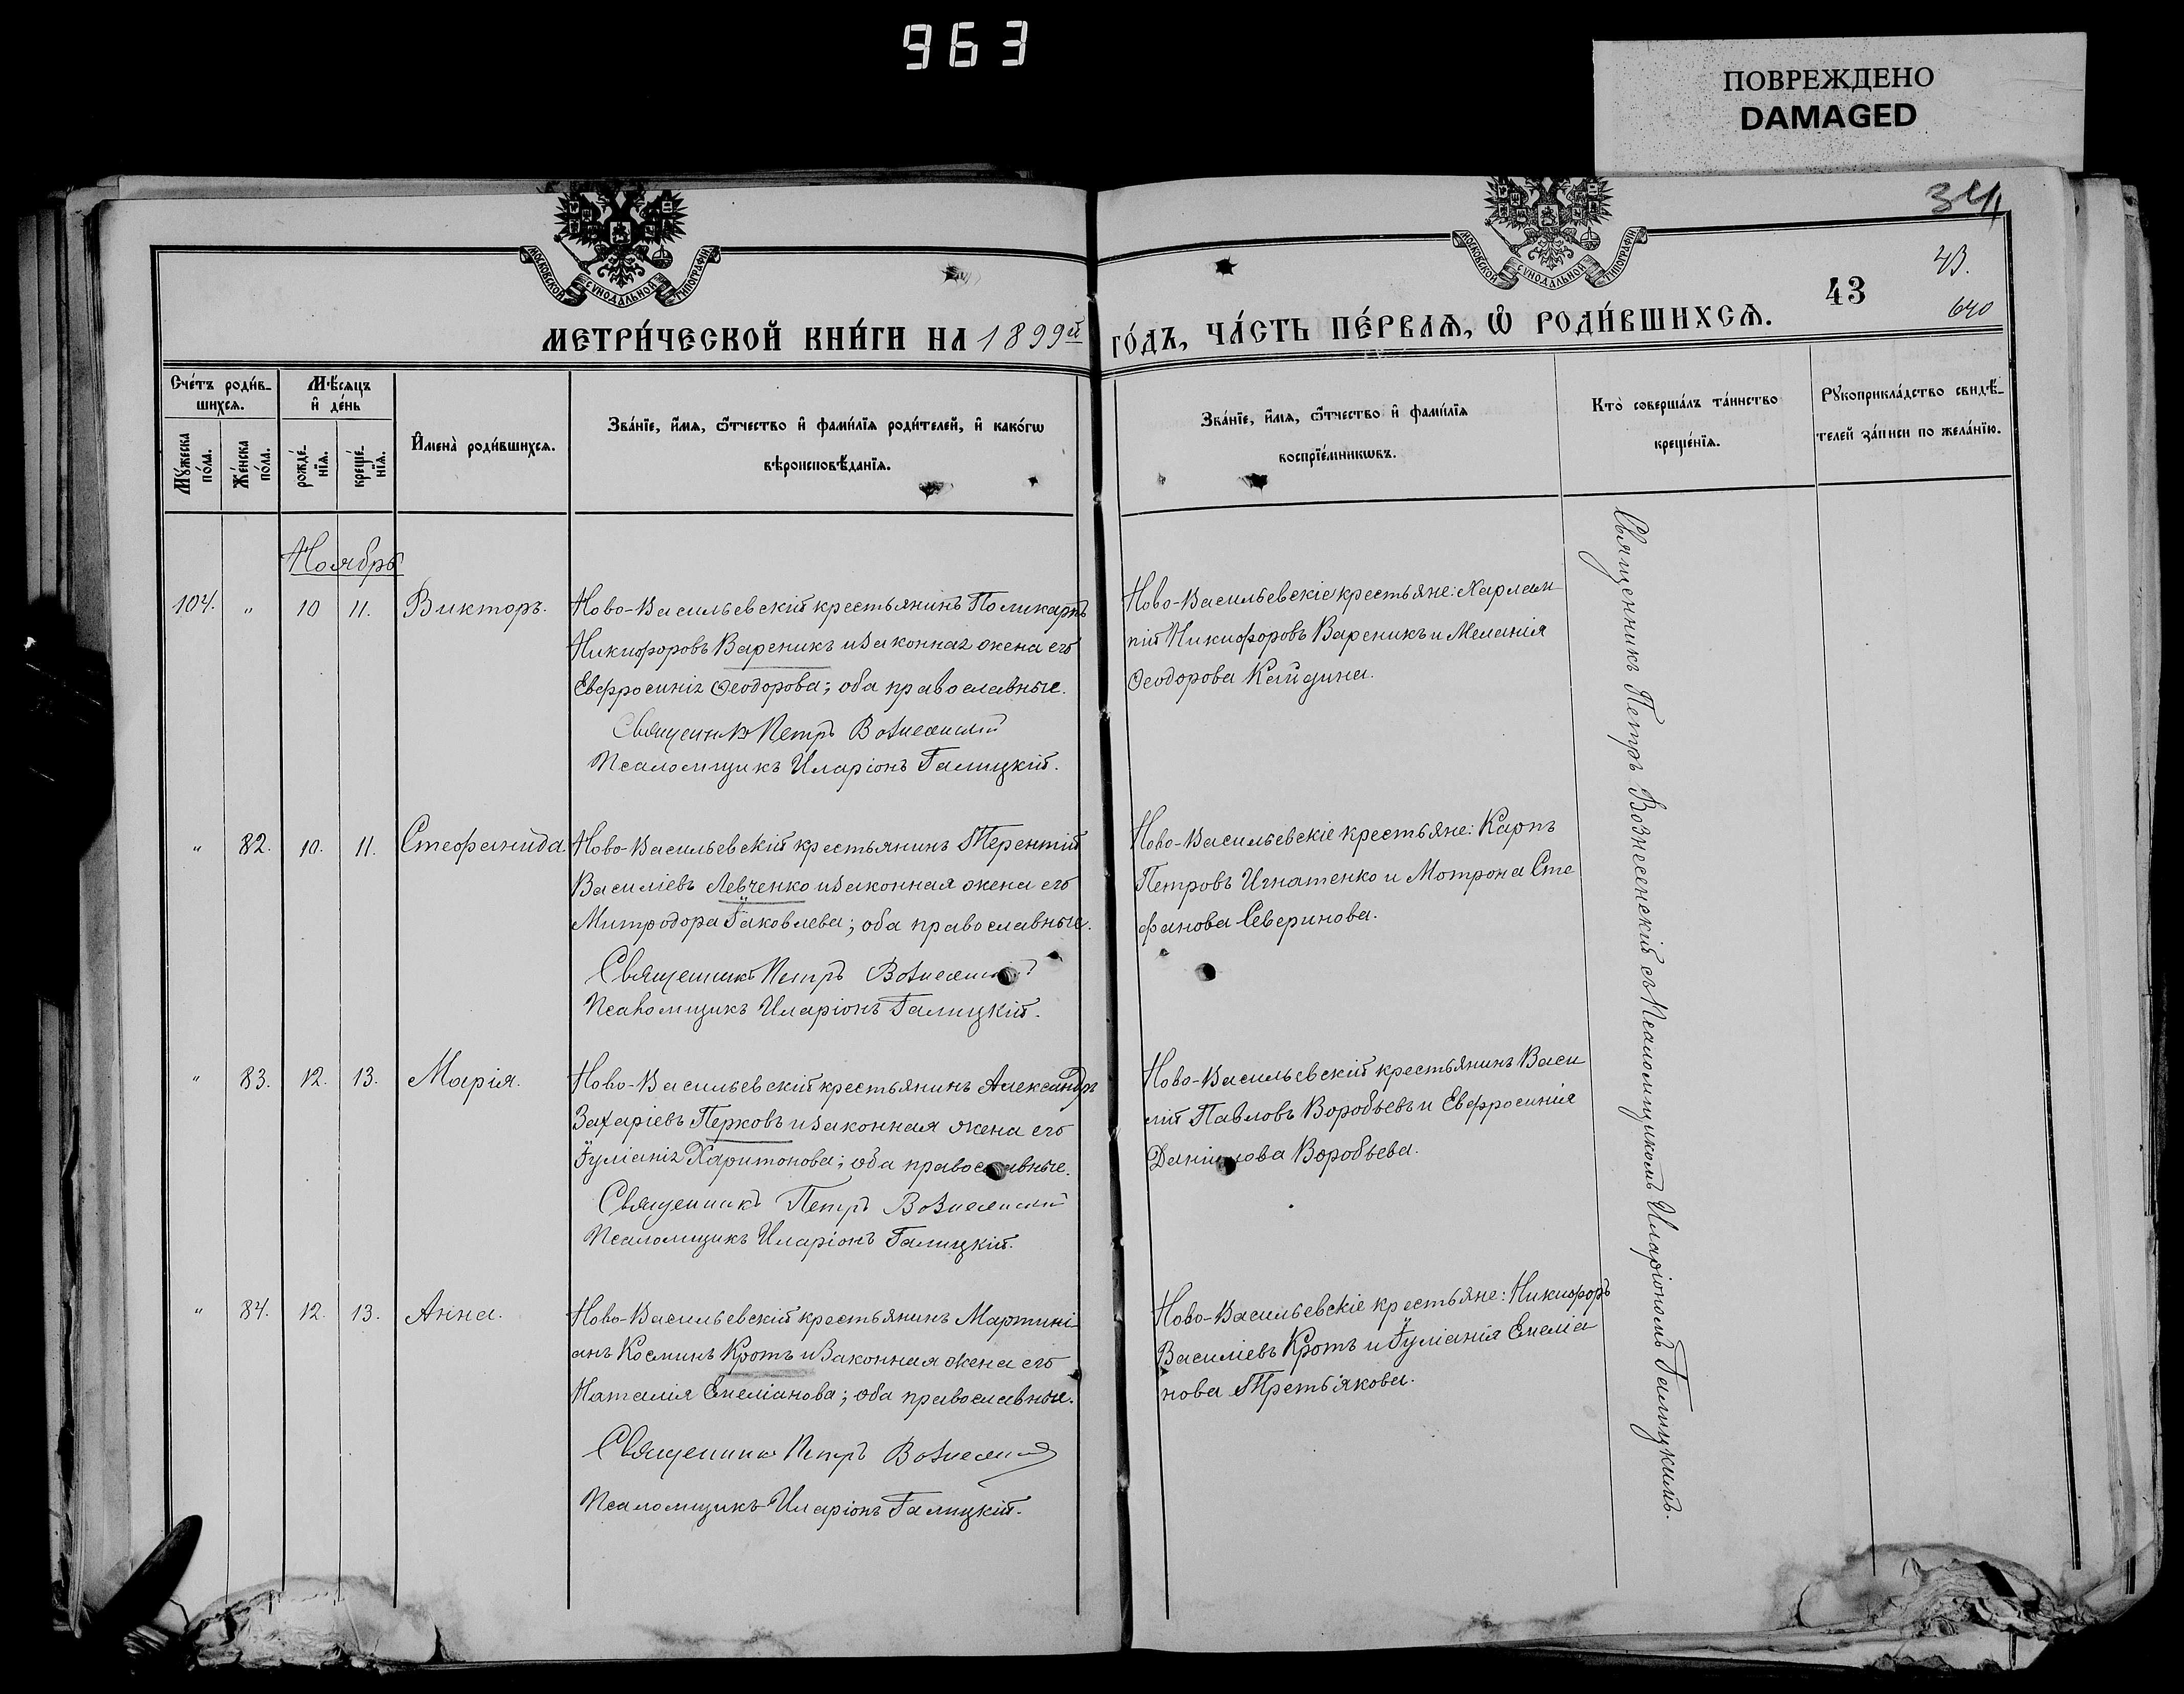 963
ПОВРЕЖДЕНО
DAMAGED
МОСКОВСКОЙ СѴНОДАЛЬНОЙ ТИПОГРАФІИ
МОСКОВСКОЙ СѴНОДАЛЬНОЙ ТИПОГРАФІИ
34
43.
43
640
МЕТРИ́ЧЕСКОЙ КНИ́ГИ НА 1899й ГО́ДЪ, ЧА́СТЬ ПЕ́РВАЯ, Ѡ РОДИ́ВШИХСЯ.
Сче́тъ роди́в-
шихся.
Мѣ́сяцъ
и де́нь
Му́жеска по́ла.
Же́нска по́ла.
рожде́-
нія.
креще́-
нія.
Имена̀ роди́вшихся.
Зва́ніе, и́мя, ѻ́тчество и фами́лія роди́телей, и како́гѡ
вѣроисповѣ́данія.
Зва́ніе, и́мя, ѻ́тчество и фами́лія
воспріе́мникѡвъ.
Кто̀ соверша́лъ та́инство
креще́нія.
Рꙋкоприкла́дство свидѣ́-
телей за́писи по жела́нію.
Ноябрь
104. " 10 11. Викторъ. Ново-Васильевскій крестьянинъ Поликарпъ
Никифоровъ Вареникъ и законная жена его
Евфросинія Ѳеодорова; оба православные.
Священникъ Петръ Вознесенскій
Псаломщикъ Иларіонъ Галицкій.
Ново-Васильевскіе крестьяне: Харлам-
пій Никифоровъ Вареникъ и Меланія
Ѳеодорова Кайдина.
" 82. 10. 11. Стефанида. Ново-Васильевскій крестьянинъ Терентій
Василіевъ Левченко и законная жена его
Митродора Іаковлева; оба православные.
Священникъ Петръ Вознесенскій
Псаломщикъ Иларіонъ Галицкій.
Ново-Васильевскіе крестьяне: Карпъ
Петровъ Игнатенко и Мотрона Сте
фанова Северинова.
" 83. 12. 13. Марія. Ново-Васильевскій крестьянинъ Александръ
Захаріевъ Перковъ и законная жена его
Іуліанія Харитонова; оба православные.
Священникъ Петръ Вознесенскій
Псаломщикъ Иларіонъ Галицкій.
Ново-Васильевскій крестьянинъ Васи
лій Павловъ Воробьевъ и Евфросинія
Даніилова Воробьева.
" 84. 12. 13. Анна. Ново-Васильевскій крестьянинъ Мартині-
анъ Косминъ Кротъ и законная жена его
Наталія Емеліанова; оба православные.
Священникъ Петръ Вознесенскій
Псаломщикъ Иларіонъ Галицкій.
Ново-Васильевскіе крестьяне: Никифоръ
Василіевъ Кротъ и Іуліанія Емеліа-
нова Третьякова.
Священникъ Петръ Вознесенскій съ Псаломщикомъ Иларіономъ Галицкимъ.